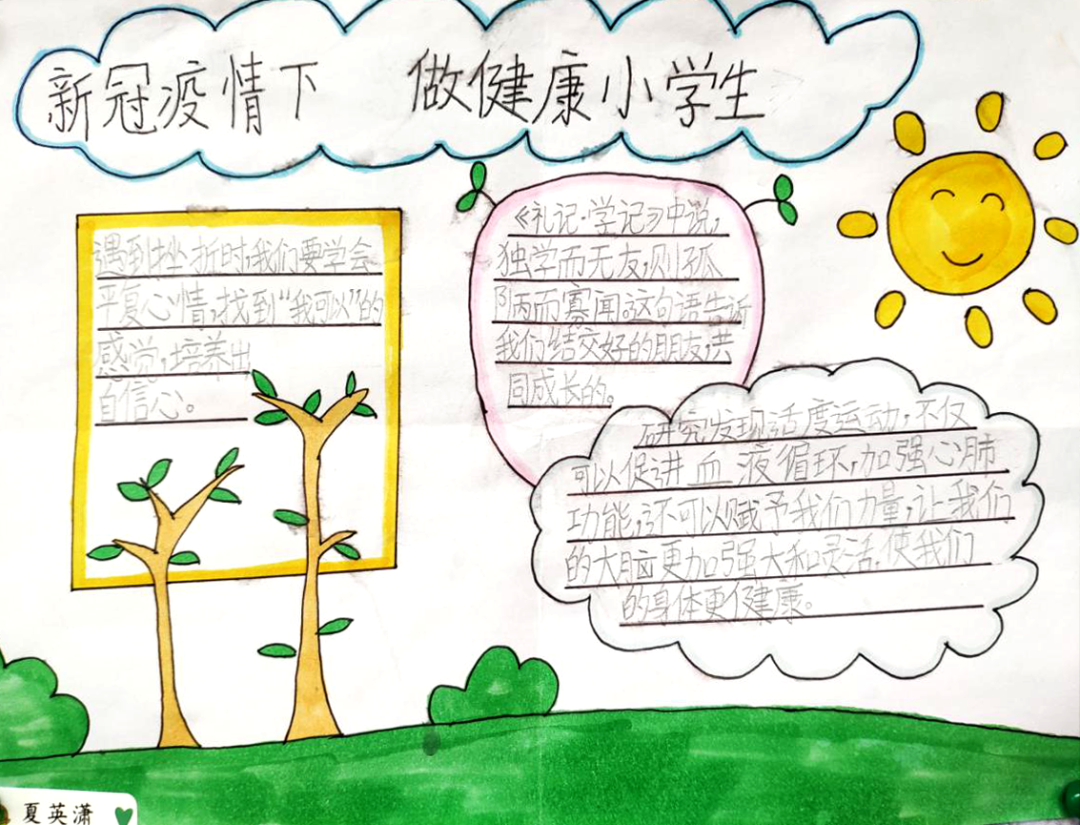 新冠疫情下 做健康小学生
遇到挫折时,我们要学会
平复心情,找到“我可以”的
感觉,培养出
自信心。
《礼记·学记》中说,
独学而无友,则孤
陋而寡闻。这句话告诉
我们结交好的朋友,共
同成长的。
研究发现适度运动,不仅
可以促进血液循环,加强心肺
功能,还可以赋予我们力量,让我们
的大脑更加强大和灵活,使我们
的身体更健康。
夏英潇